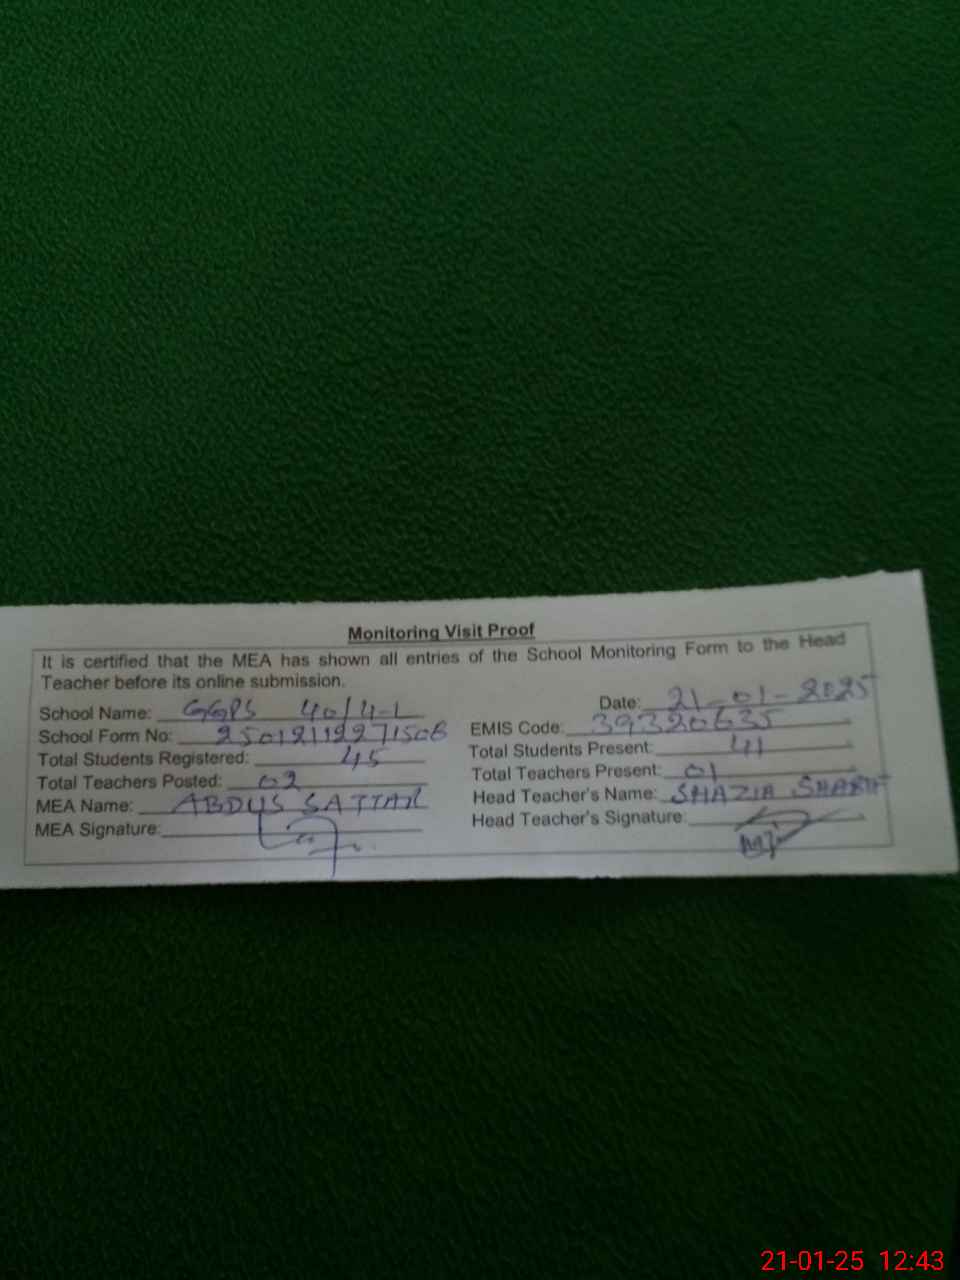 Monitoring Visit Proof
It is certified that the MEA has shown all entries of the School Monitoring Form to the Head
Teacher before its online submission.
Date: 21-01-2025
School Name: GGPS 40/4-L
EMIS Code: 39320635
School Form No:
Total Students Present: 41
Total Students Registered: 45
Total Teachers Present: 01
Total Teachers Posted: 02
Head Teacher's Name: SHAZIA
MEA Name: ABDUS SATTAR
Head Teacher's Signature:
MEA Signature:
21-01-25 12:43